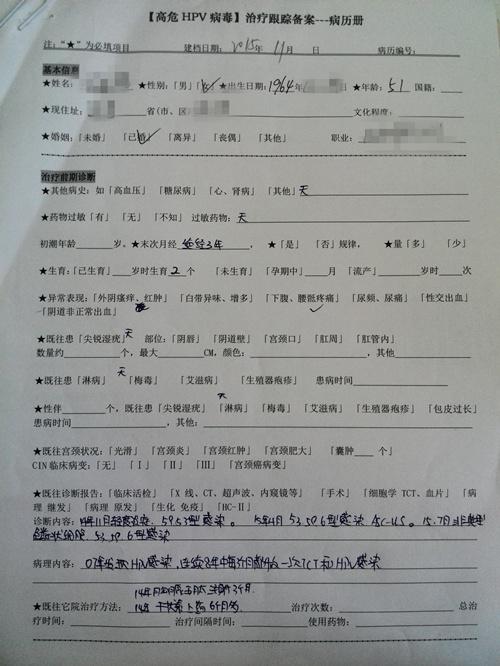 【高危 HPV 病毒】治疗跟踪备案---病历册
注：“★”为必填项目 建档日期：2015年 11月 日 病历编号：
基本信息
★姓名： ★性别：「男」「女」★出生日期：1964 ★年龄：51 国籍：
★现住址： 省(市、区 文化程度：
★婚姻：「未婚」 「已婚」 「离异」 「丧偶」 「其他」 职业：
治疗前期诊断
★其他病史：如「高血压」 「糖尿病」 「心、肾病」 「其他」无
★药物过敏「有」 「无」 「不知」 过敏药物：无
初潮年龄 岁。★末次月经 绝经3年 ，★「是」「否」规律，★量「多」 「少」
★生育：「已生育」 岁时生 2 个 「未生育」 「孕期中」 月 「流产」 岁时 次
★异常表现：「外阴瘙痒、红肿」 「白带异味、增多」 「下腹、腰骶疼痛」 「尿频、尿痛」 「性交出血」
「阴道非正常出血」
★既往患「尖锐湿疣」无 部位：「阴唇」 「阴道壁」 「宫颈口」 「肛周」 「肛管内」
数量约 个，最大 CM，颜色： ，其他
★既往患「淋病」无 「梅毒」 「艾滋病」 「生殖器疱疹」 患病时间
★性伴 个，既往患「尖锐湿疣」无「淋病」 「梅毒」 「艾滋病」 「生殖器疱疹」 「包皮过长」
患病时间 ，其他：
★既往宫颈状况：「光滑」 「宫颈炎」 「宫颈红肿」 「宫颈肥大」 「囊肿 个」
CIN 临床病变：「无」 「Ⅰ」 「Ⅱ」 「Ⅲ」 「宫颈癌病变」
★既往诊断报告：「临床活检」 「X 线、CT、超声波、内窥镜等」 「手术」 「细胞学 TCT、血片」 「病
理 继发」 「病理 原发」 「生化 免疫」 「HC-Ⅱ」
诊断内容： 年11月 感染，59 53型感染。 15年4月 53.59.6型感染 ASC-US。 15.7月
53.59.6型感染
病理内容： 07年 HPV感染，连续8年中每 一次TCT和HPV感染
14年 3个月.
★既往它院治疗方法： 14年 干扰素 6个月 治疗次数： 总治
疗时间： 治疗间隔时间： 使用药物：